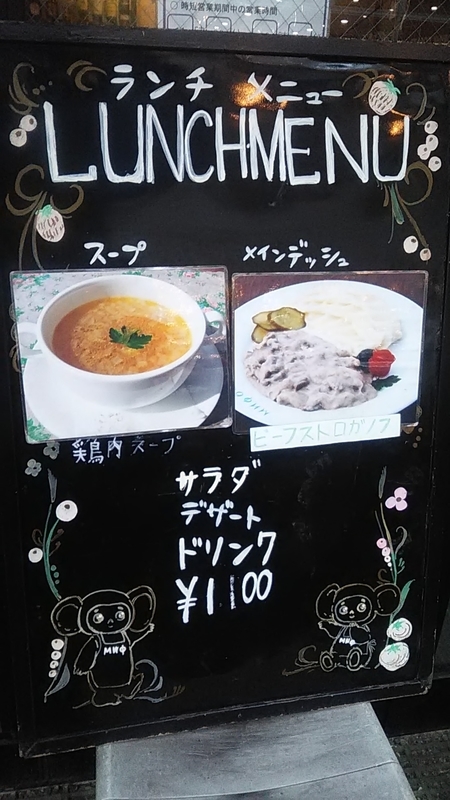 時短営業期間中の営業時間
ランチ メニュー
LUNCHMENU
スープ
メインデッシュ
鶏肉スープ
ビーフストロガノフ
サラダ
デザート
ドリンク
¥1100
МИФ
МИФ